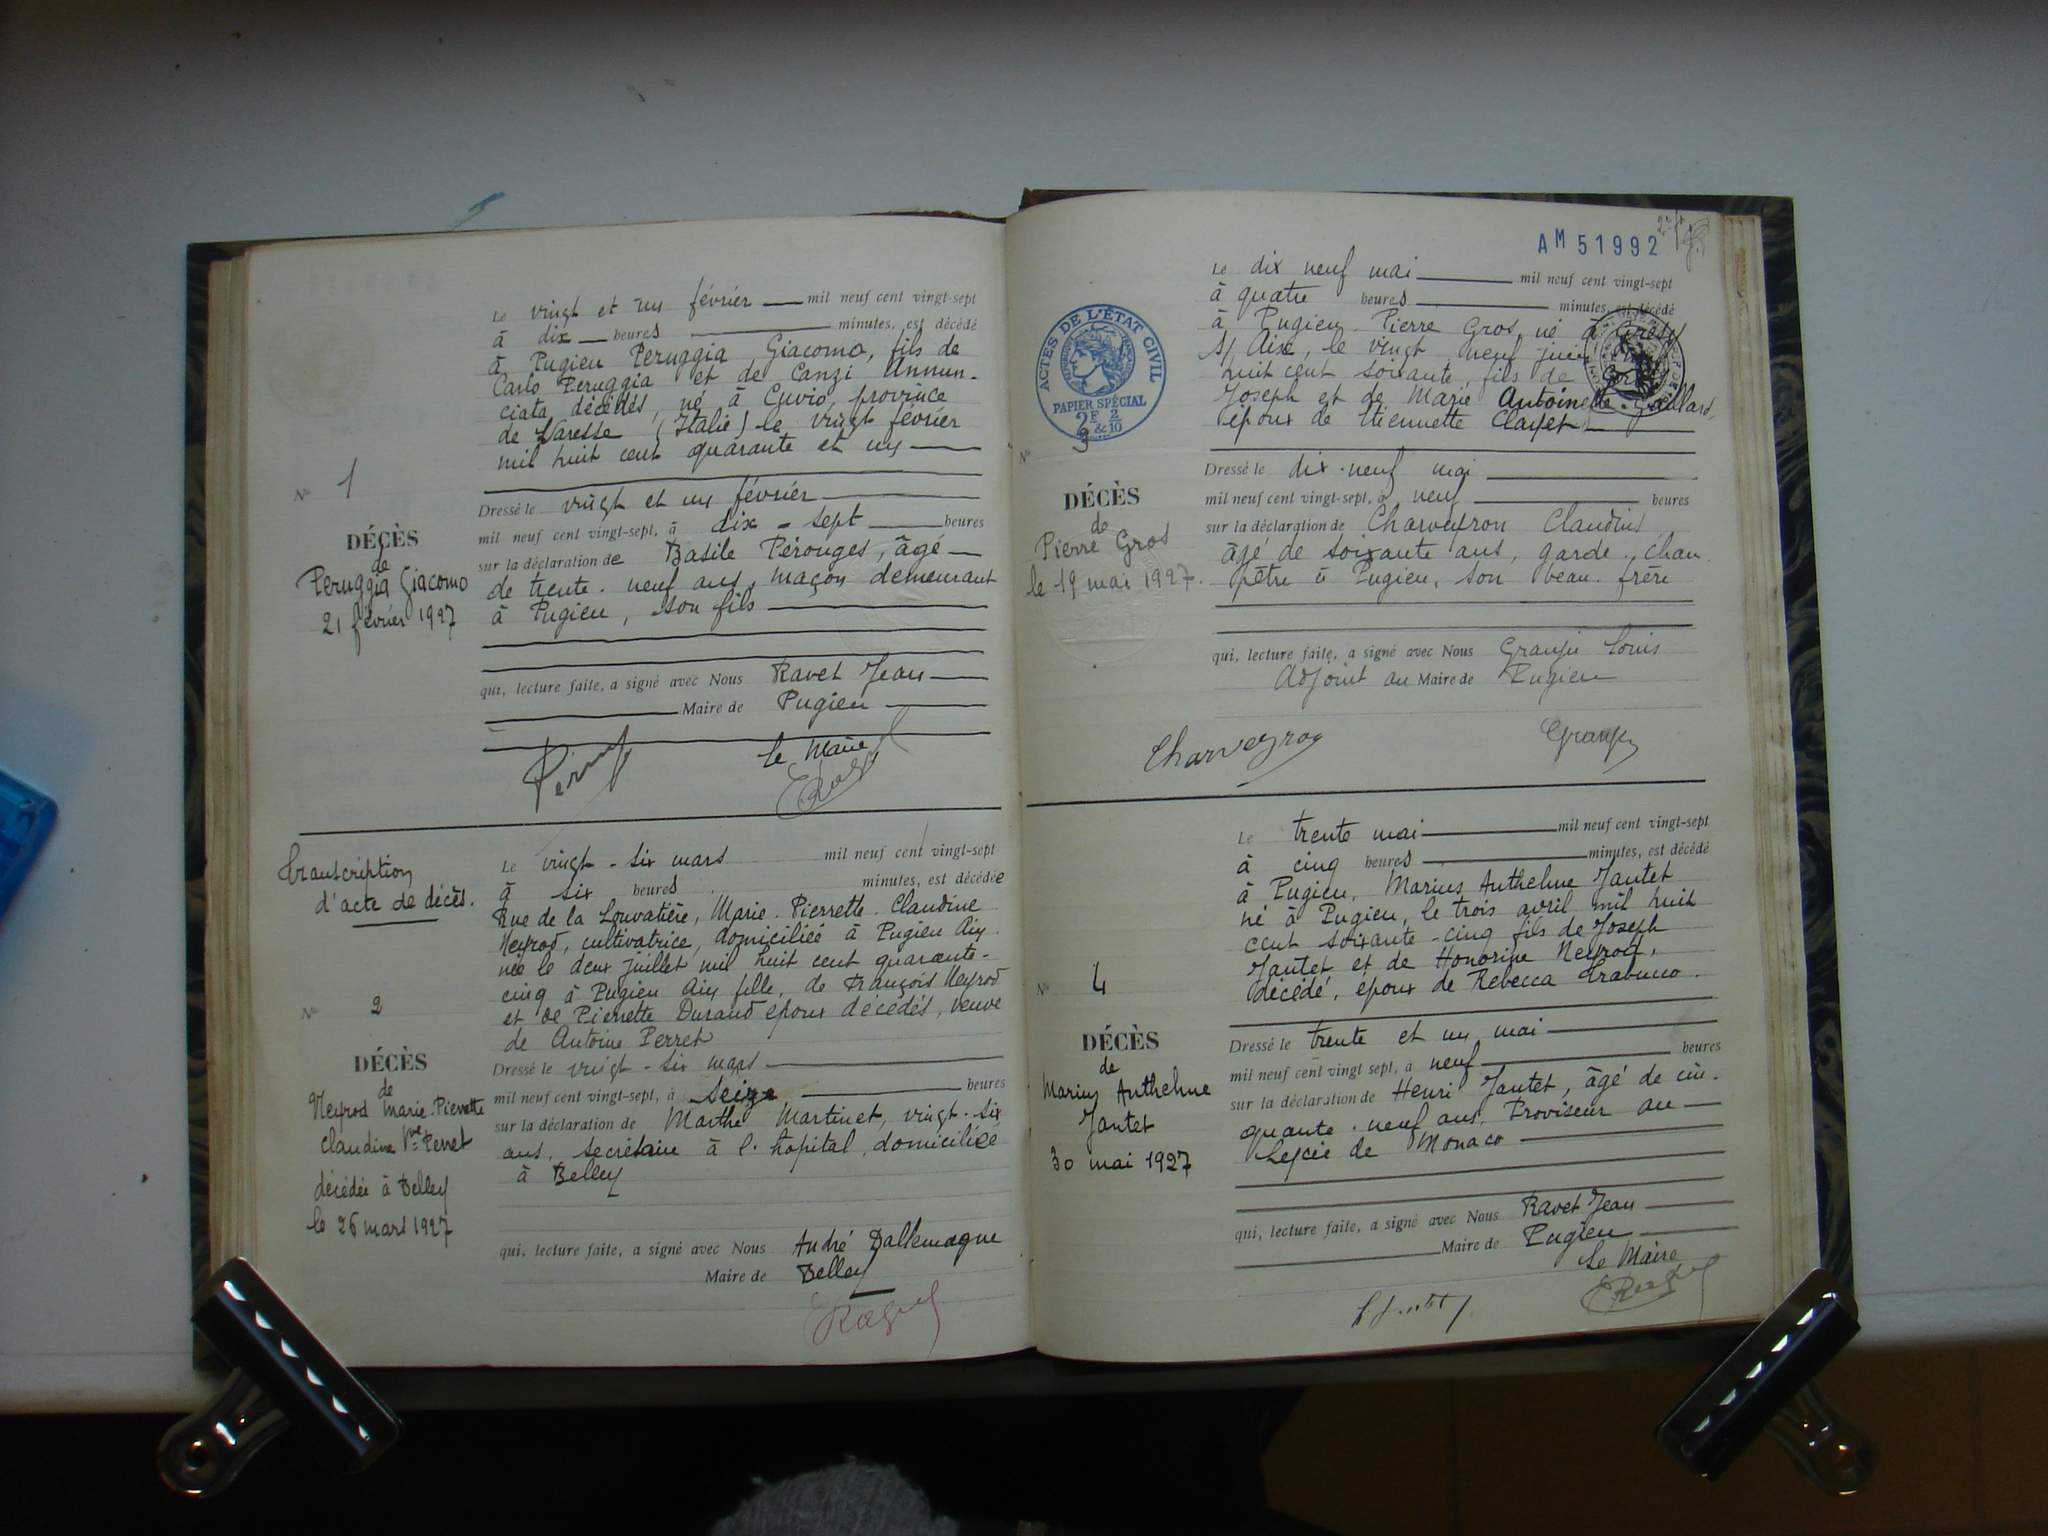 Le vingt et un février mil neuf cent vingt-sept
à dix heures minutes, est décédé
à Pugieu Peruggia Giacomo, fils de
Carlo Peruggia et de Canzi Annun-
ciata décédés, né à Cuvio, province
de Varesse (Italie) le vingt février
mil huit cent quarante et un
N° 1
DÉCÈS
de
Peruggia Giacomo
21 février 1927
Dressé le vingt et un février
mil neuf cent vingt-sept, à dix-sept heures
sur la déclaration de Basile Pérouges, âgé
de trente-neuf ans, maçon demeurant
à Pugieu, son fils
qui, lecture faite, a signé avec Nous Ravet Jean
Maire de Pugieu
Le Maire
Transcription
d'acte de décès.
Le vingt-six mars mil neuf cent vingt-sept
à six heures minutes, est décédée
Rue de la Louvatière, Marie-Pierrette-Claudine
Neyrod, cultivatrice, domiciliée à Pugieu Ain
née le deux juillet mil huit cent quarante-
cinq à Pugieu Ain fille, de François Neyrod
et de Pierrette Durand époux décédés, veuve
de Antoine Perret
N° 2
DÉCÈS
de
Neyrod Marie-Pierrette
Claudine Vve Perret
décédée à Belley
le 26 mars 1927
Dressé le vingt-six mars
mil neuf cent vingt-sept, à seize heures
sur la déclaration de Marthe Martinet, vingt-six
ans, secrétaire à l'hopital, domiciliée
à Belley
qui, lecture faite, a signé avec Nous André Dallemagne
Maire de Belley
AM 51992
ACTES DE L'ÉTAT CIVIL
PAPIER SPÉCIAL
2F & 2/10
Le dix neuf mai mil neuf cent vingt-sept
à quatre heures minutes, est décédé
à Pugieu Pierre Gros, né à Grésy
s/ Aix, le vingt neuf juin mil
huit cent soixante, fils de
Joseph et de Marie Antoinette Gaillard,
époux de Etiennette Clayet
N° 3
DÉCÈS
de
Pierre Gros
le 19 mai 1927.
Dressé le dix-neuf mai
mil neuf cent vingt-sept, à neuf heures
sur la déclaration de Charveyron Claudius
âgé de soixante ans, garde-cham
pêtre à Pugieu, son beau-frère
qui, lecture faite, a signé avec Nous Granju Louis
Adjoint au Maire de Pugieu
Charveyron
Granju
Le trente mai mil neuf cent vingt-sept
à cinq heures minutes, est décédé
à Pugieu, Marius Anthelme Jantet
né à Pugieu, le trois avril mil huit
cent soixante-cinq fils de Joseph
Jantet et de Honorine Neyrod,
décédé, époux de Rebecca Trabucco.
N° 4
DÉCÈS
de
Marius Anthelme
Jantet
30 mai 1927
Dressé le trente et un mai
mil neuf cent vingt sept, à neuf heures
sur la déclaration de Henri Jantet, âgé de cin-
quante-neuf ans, Proviseur au
Lycée de Monaco
qui, lecture faite, a signé avec Nous Ravet Jean
Maire de Pugieu
Le Maire